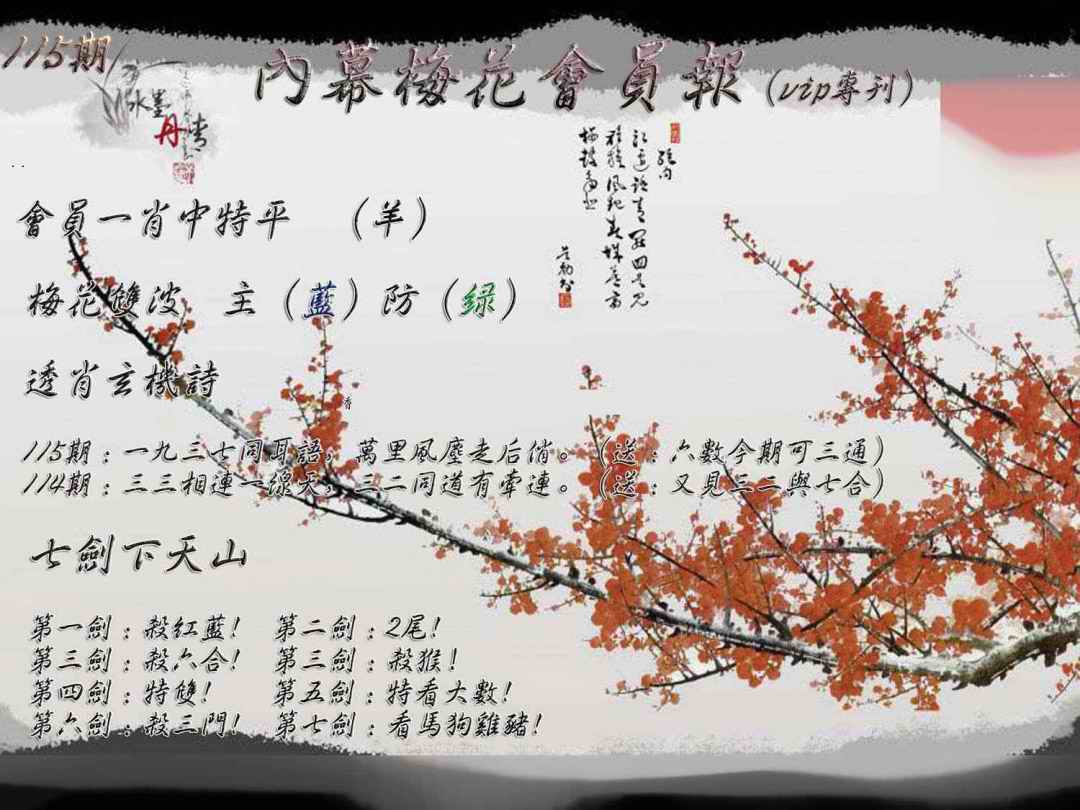 115期
內幕梅花會員報(vip專刊)
水墨
丹青
會員一肖中特平 (羊)
梅花雙波 主(藍)防(緑)
透肖玄機詩
看
115期:一九三七同耳語,萬里風塵走后俏。(送:六數今期可三通)
114期:三三相連一線天,三二同道有牽連。(送:又見三二與七合)
七劍下天山
第一劍:殺紅藍! 第二劍:2尾!
第三劍:殺六合! 第三劍:殺猴!
第四劍:特雙! 第五劍:特看大數!
第六劍:殺三門! 第七劍:看馬狗雞豬!